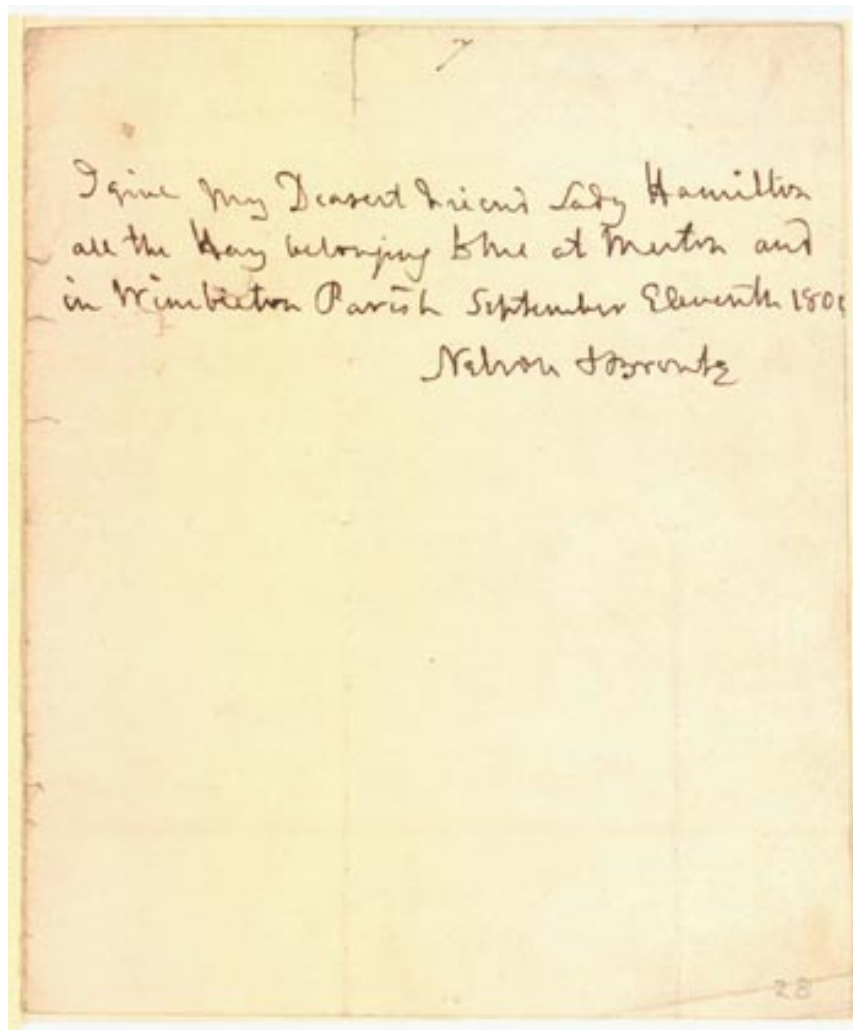 7
I give my Dearest friend Lady Hamilton
all the Hay belonging to me at Merton and
in Wimbleton Parish September Eleventh
Nelson & Bronte
28